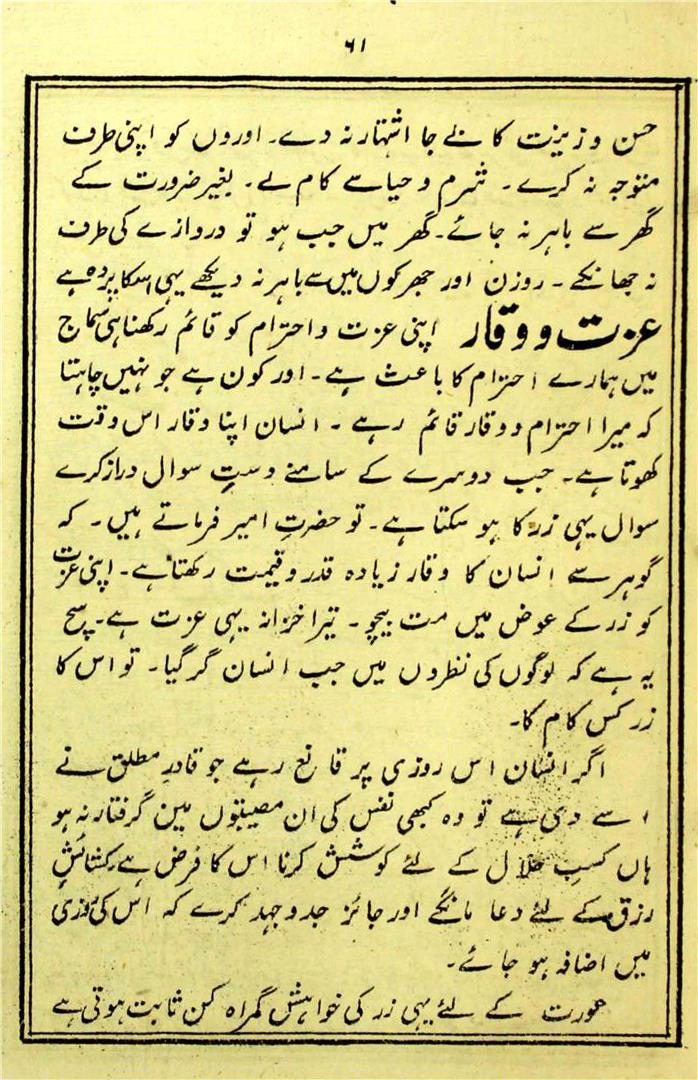 ۶۱
حسن و زینت کا بے جا اشتہار نہ دے۔ اوروں کو اپنی طرف
متوجہ نہ کرے۔ شرم و حیا سے کام لے۔ بغیر ضرورت کے
گھر سے باہر نہ جائے۔ گھر میں جب ہو تو دروازے کی طرف
نہ جھانکے۔ روزن اور جھرکوں میں سے باہر نہ دیکھے یہی اسکا پردہ ہے
عزت و وقار اپنی عزت و احترام کو قائم رکھنا ہی سماج
میں ہمارے احترام کا باعث ہے۔ اور کون ہے جو نہیں چاہتا
کہ میرا احترام و وقار قائم رہے ۔ انسان اپنا وقار اس وقت
کھوتا ہے۔ جب دوسرے کے سامنے دستِ سوال دراز کرے
سوال یہی زر کا ہو سکتا ہے۔ تو حضرتِ امیر فرماتے ہیں۔ کہ
گوہر سے انسان کا وقار زیادہ قدر و قیمت رکھتا ہے۔ اپنی عزت
کو زر کے عوض میں مت بیچو۔ تیرا خزانہ یہی عزت ہے۔ سچ
یہ ہے کہ لوگوں کی نظروں میں جب انسان گر گیا۔ تو اس کا
زر کس کام کا۔
اگر انسان اس روزی پر قانع رہے جو قادرِ مطلق نے
اسے دی ہے تو وہ کبھی نفس کی ان مصیبتوں مین گرفتار نہ ہو
ہاں کسبِ حلال کے لئے کوشش کرنا اس کا فرض ہے کشائشِ
رزق کے لئے دعا مانگے اور جائز جدوجہد کرے کہ اس کی روزی
میں اضافہ ہو جائے۔
عورت کے لئے یہی زر کی خواہش گمراہ کن ثابت ہوتی ہے